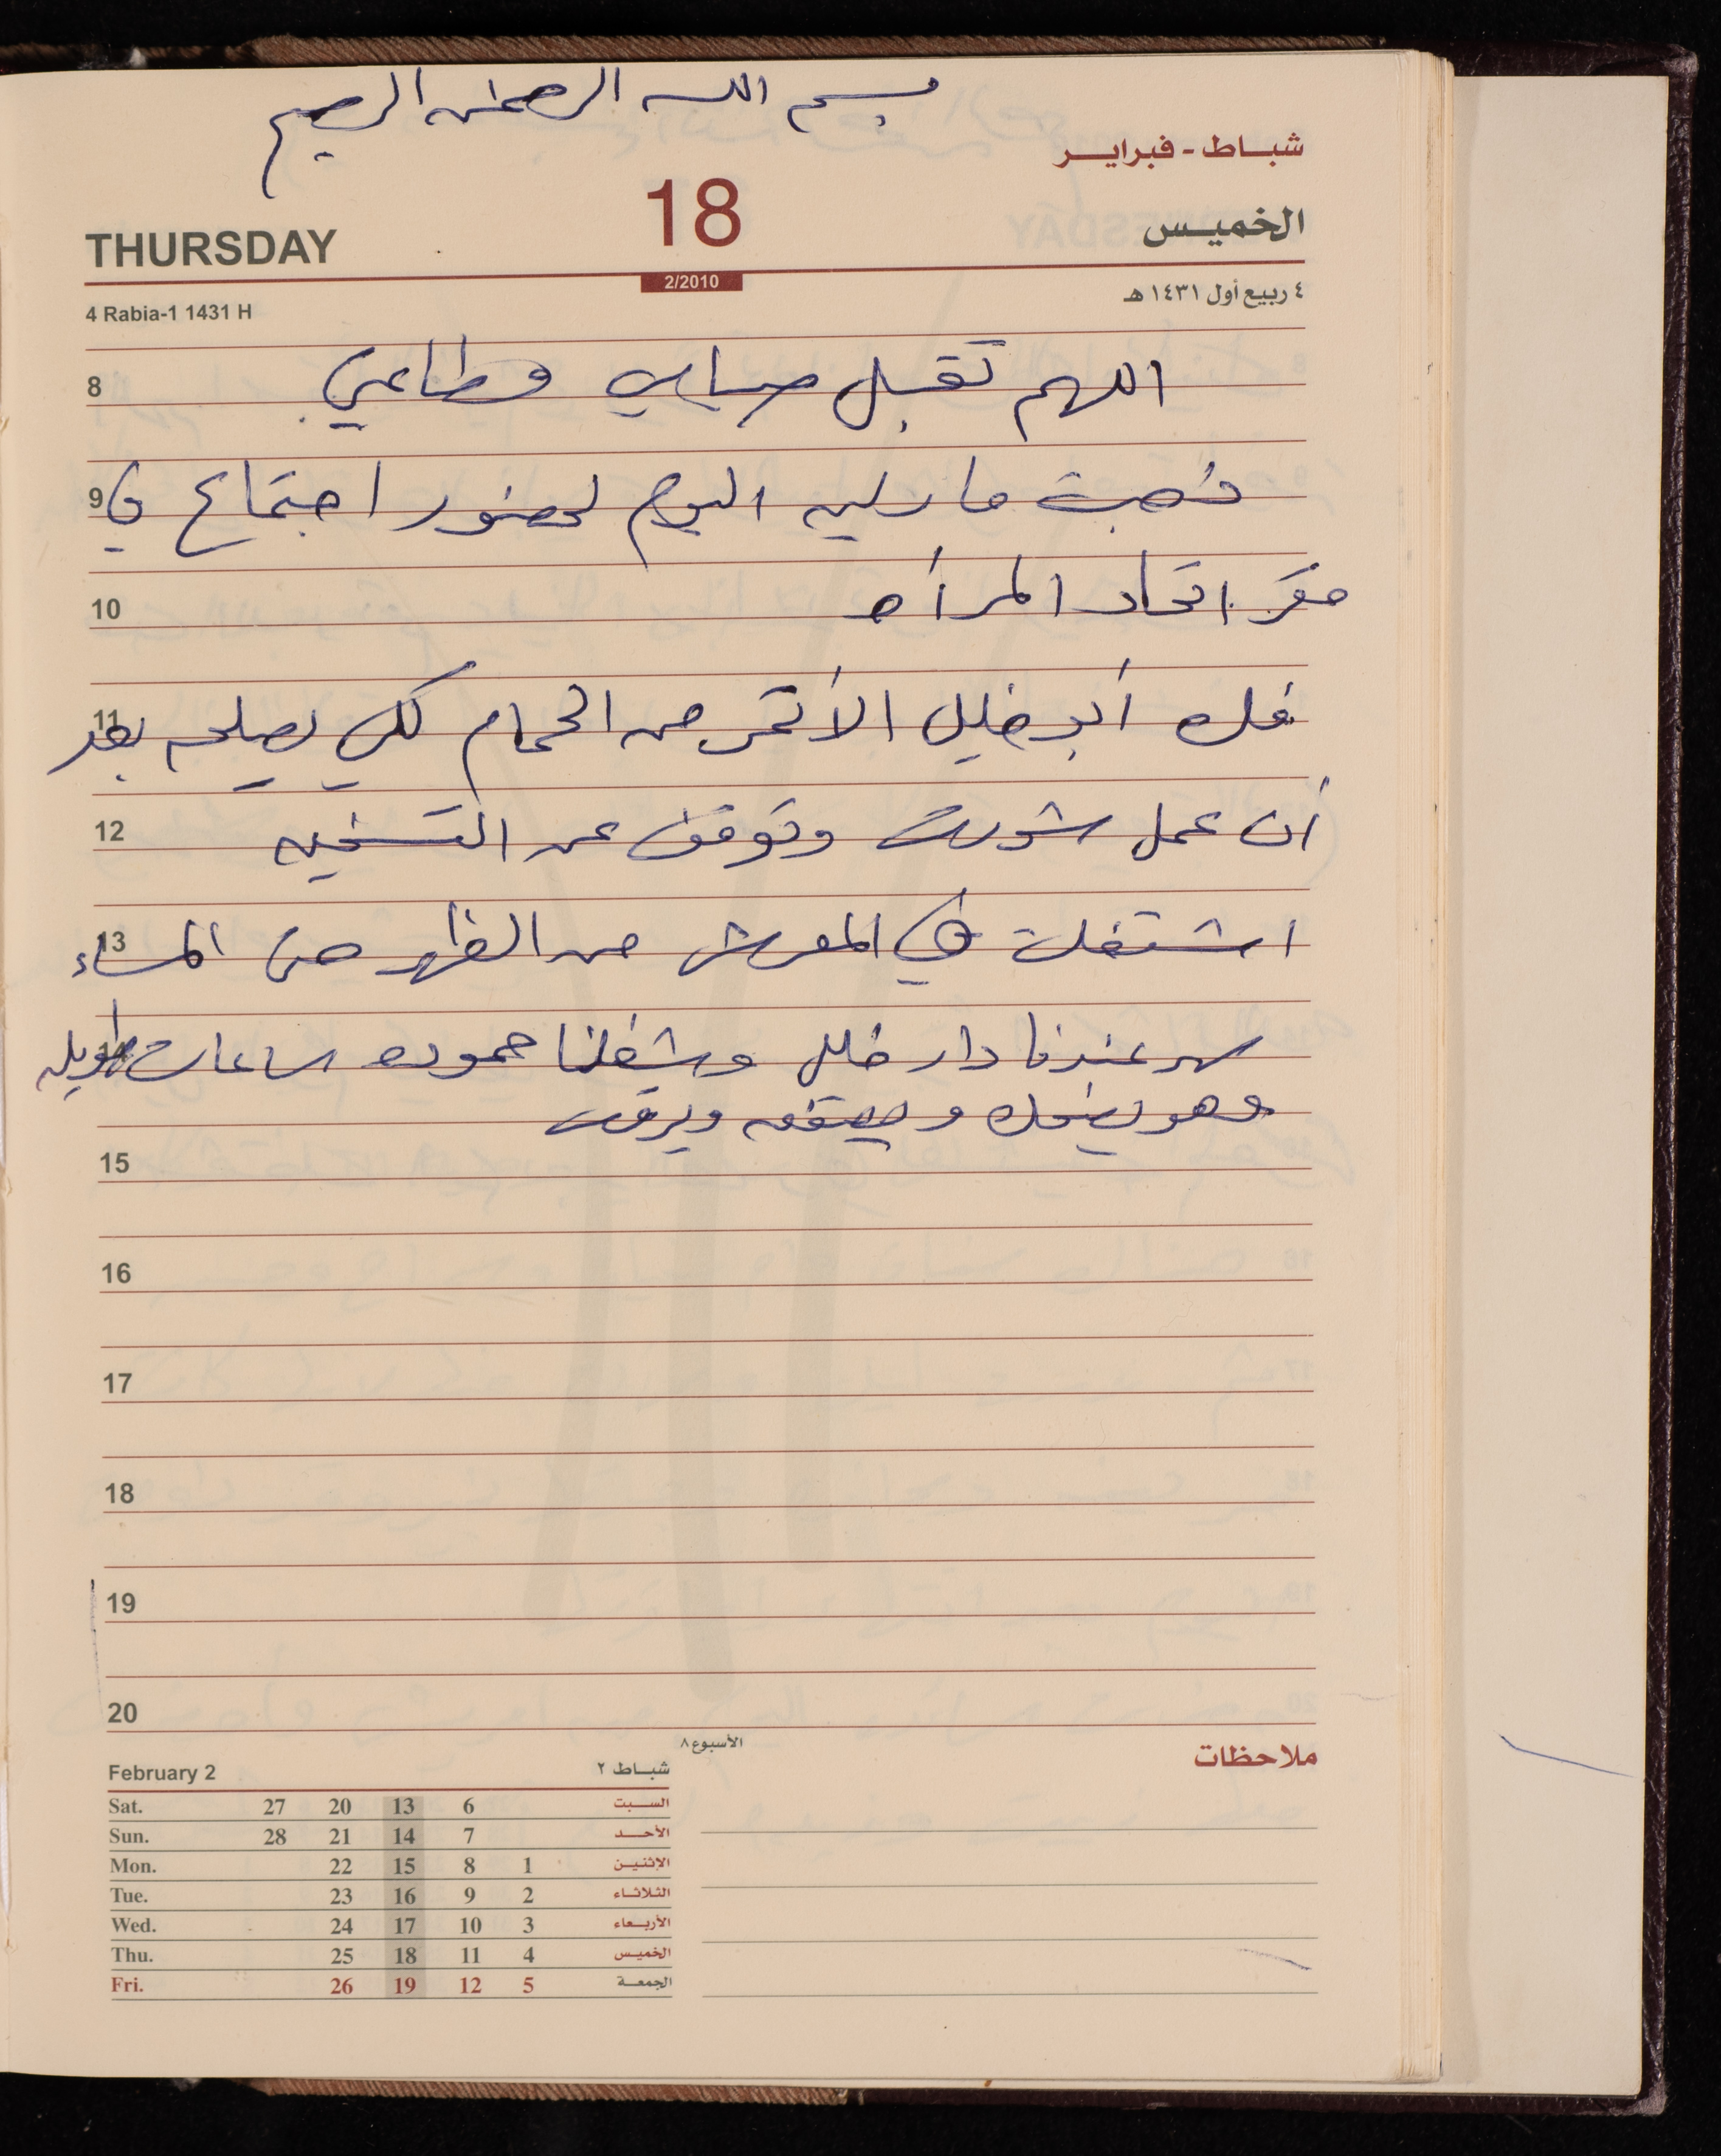 بسم الله الرحمن الرحيم
شباط - فبراير
THURSDAY 18 الخميس
2/2010
4 Rabia-1 1431 H ٤ ربيع أول ١٤٣١ هـ
8 اللهم تقبل صيامي وطاعتي
9 ذهبت ماريليه اليوم لحضور اجتماع في
10 مقر اتحاد المرأه
11 فك أبو خليل الأتمر من الحمام لكي يصلحه بعد
12 أن عمل شورت وتوقف عن التسخين
13 اشتغلت في المعرش من الظهر حتى المساء
14 سهر عندنا دار خليل وشغلنا حموده ساعات طويله
وهو يضحك ويصفق ويرقص
15
16
17
18
19
20
الأسبوع ٨
ملاحظات
February 2 شباط ٢
Sat. 27 20 13 6 السبت
Sun. 28 21 14 7 الأحد
Mon. 22 15 8 1 الإثنين
Tue. 23 16 9 2 الثلاثاء
Wed. 24 17 10 3 الأربعاء
Thu. 25 18 11 4 الخميس
Fri. 26 19 12 5 الجمعة